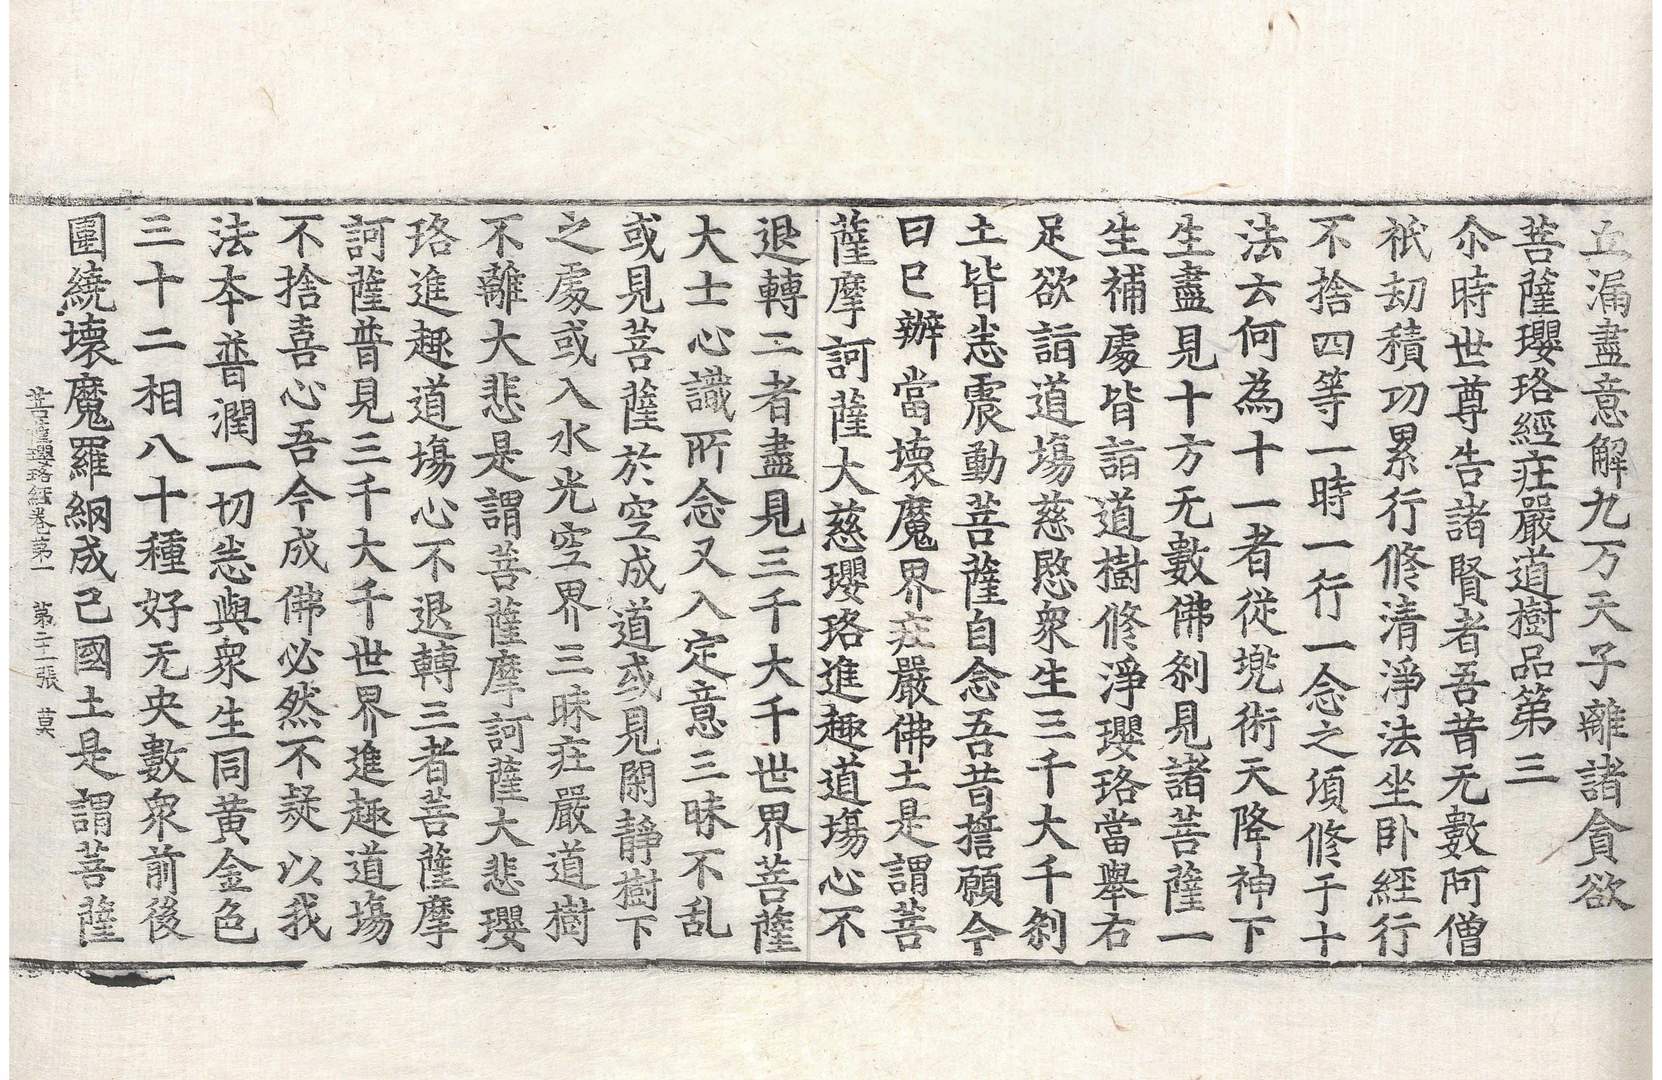 立漏盡意解九万天子離諸貪欲
菩薩瓔珞經庄嚴道樹品第三
尒時世尊告諸賢者吾昔无數阿僧
祇劫積功累行修清淨法坐卧經行
不捨四等一時一行一念之頃修于十
法云何為十一者從兠術天降神下
生盡見十方无數佛刹見諸菩薩一
生補處皆詣道樹修淨瓔珞當舉右
足欲詣道場慈愍衆生三千大千刹
土皆悉震動菩薩自念吾昔擔願今
日已辦當壊魔界庄嚴佛土是謂菩
薩摩訶薩大慈瓔珞進趣道場心不
退轉二者盡見三千大千世界菩薩
大士心識所念又入定意三昧不乱
或見菩薩於空成道或見閑靜樹下
之處或入水光空界三昧庄嚴道樹
不離大悲是謂菩薩摩訶薩大悲瓔
珞進趣道場心不退轉三者菩薩摩
訶薩普見三千大千世界進趣道場
不捨喜心吾今成佛必然不疑以我
法夲普潤一切悉與衆生同黄金色
三十二相八十種好无央數衆前後
圍繞壊魔羅網成己國土是謂菩薩
菩薩瓔珞經卷第一　第二十一張　莫